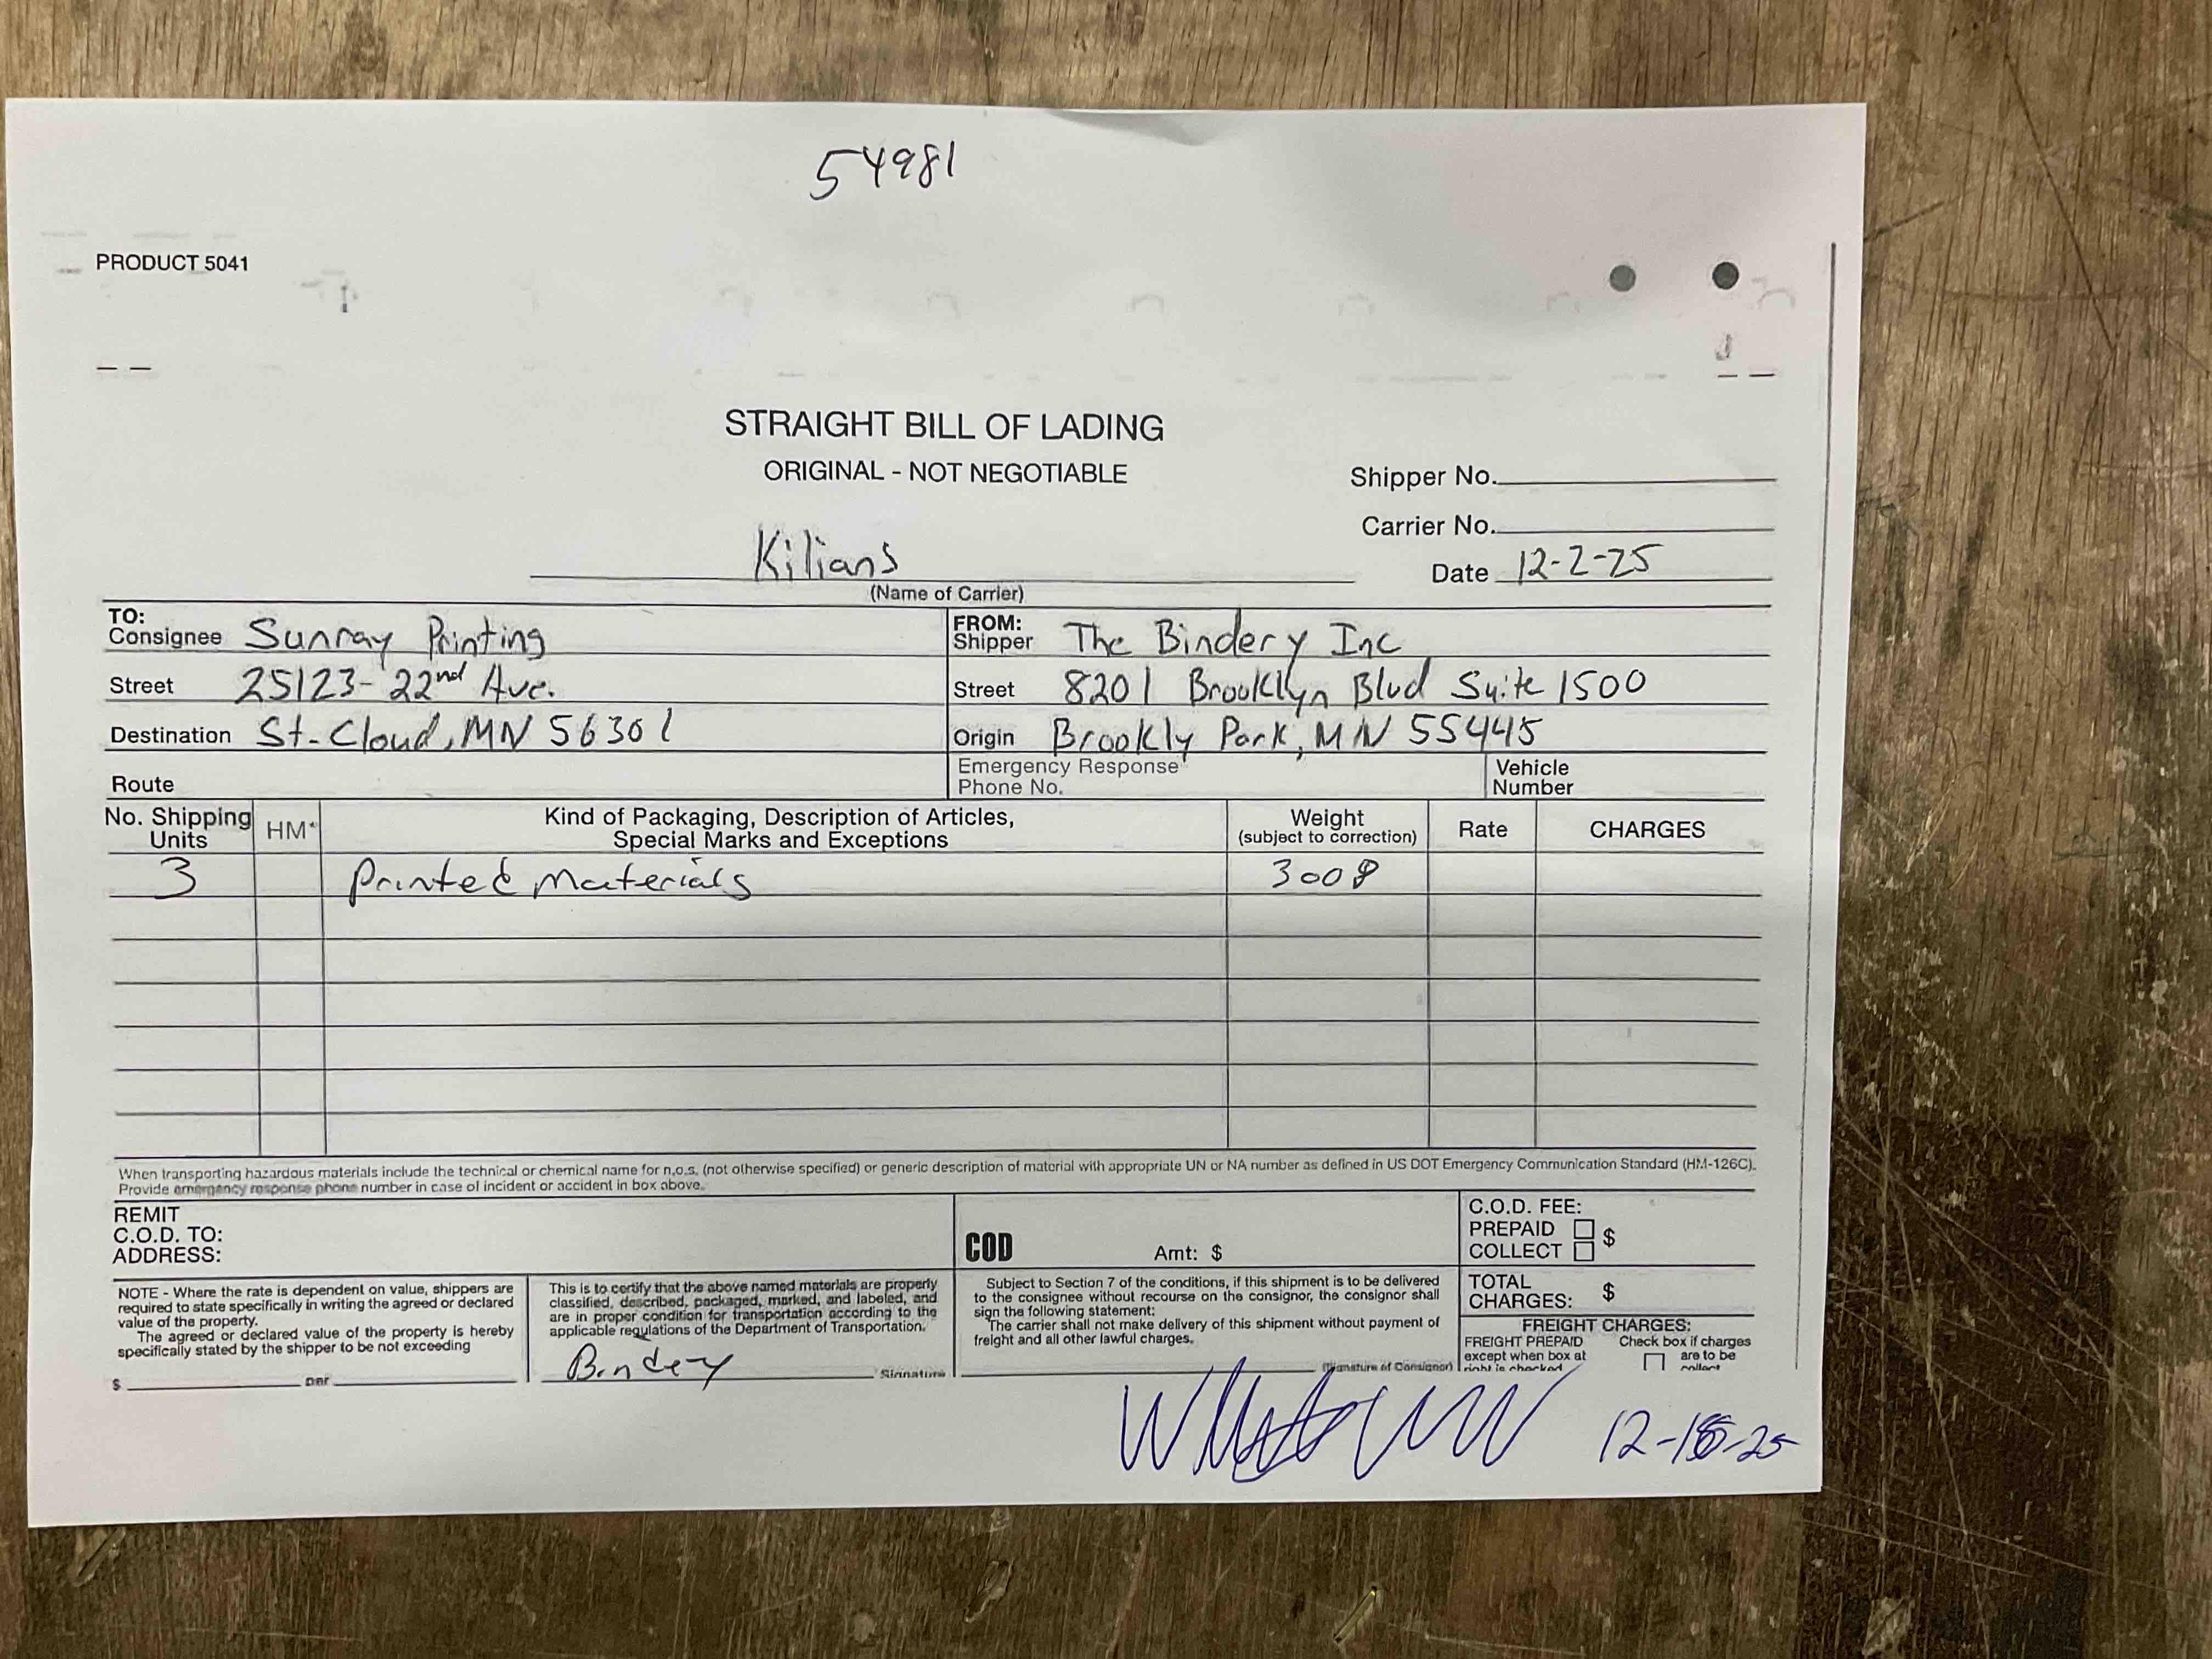 54981
PRODUCT 5041
STRAIGHT BILL OF LADING
ORIGINAL - NOT NEGOTIABLE
Shipper No.
Carrier No.
Kilians
Date 12-2-25
(Name of Carrier)
TO:
Consignee Sunray Printing
FROM:
Shipper The Bindery Inc
Street 25123- 22nd Ave.
Street 8201 Brooklyn Blvd Suite 1500
Destination St. Cloud, MN 56301
Origin Brookly Park, MN 55445
Route
Emergency Response
Phone No.
Vehicle
Number
No. Shipping
Units
HM*
Kind of Packaging, Description of Articles,
Special Marks and Exceptions
Weight
(subject to correction)
Rate
CHARGES
3 Printed Materials 3008
When transporting hazardous materials include the technical or chemical name for n.o.s. (not otherwise specified) or generic description of material with appropriate UN or NA number as defined in US DOT Emergency Communication Standard (HM-126C).
Provide emergency response phone number in case of incident or accident in box above.
REMIT
C.O.D. TO:
ADDRESS:
COD
Amt: $
C.O.D. FEE:
PREPAID $
COLLECT
NOTE - Where the rate is dependent on value, shippers are
required to state specifically in writing the agreed or declared
value of the property.
The agreed or declared value of the property is hereby
specifically stated by the shipper to be not exceeding
$ per
This is to certify that the above named materials are properly
classified, described, packaged, marked, and labeled, and
are in proper condition for transportation according to the
applicable regulations of the Department of Transportation.
Bindery
Signature
Subject to Section 7 of the conditions, if this shipment is to be delivered
to the consignee without recourse on the consignor, the consignor shall
sign the following statement:
The carrier shall not make delivery of this shipment without payment of
freight and all other lawful charges.
(Signature of Consignor)
TOTAL
CHARGES: $
FREIGHT CHARGES:
FREIGHT PREPAID
except when box at
right is checked
Check box if charges
are to be
collect